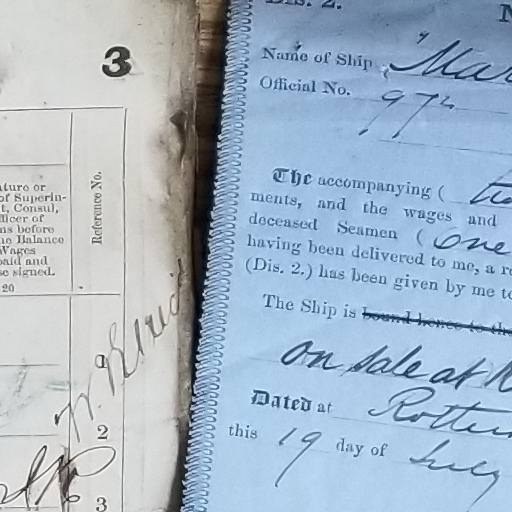 3
ature or
of Superin-
t, Consul,
fficer of
ns before
he Balance
Wages
paid and
se signed.
20
Reference No.
2
3
Dis. 2.
Name of Ship "Mar
Official No. 97
The accompanying (
ments, and the wages and
deceased Seamen (one
having been delivered to me, a re
(Dis. 2.) has been given by me to
The Ship is bound hence to the
on sale at
Dated at Rotter
this 19 day of July